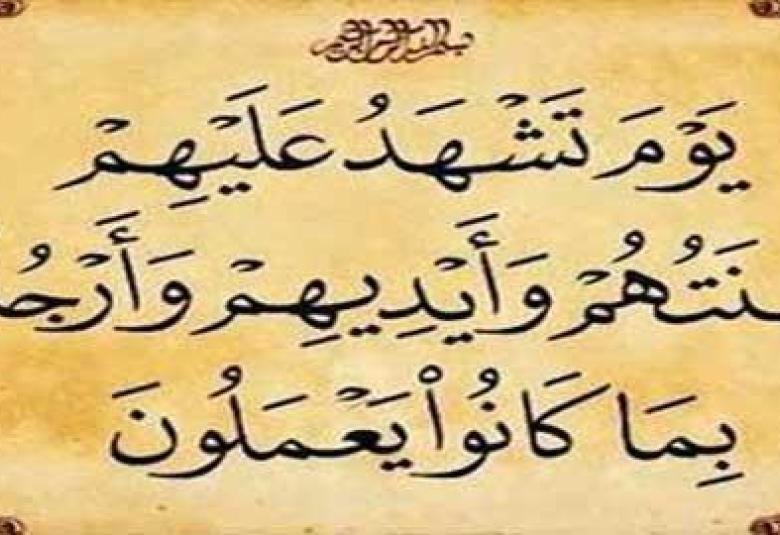 بسم الله الرحمن الرحيم
يَوْمَ تَشْهَدُ عَلَيْهِمْ
وَأَيْدِيهِمْ
بِمَا كَانُوا۟ يَعْمَلُونَ